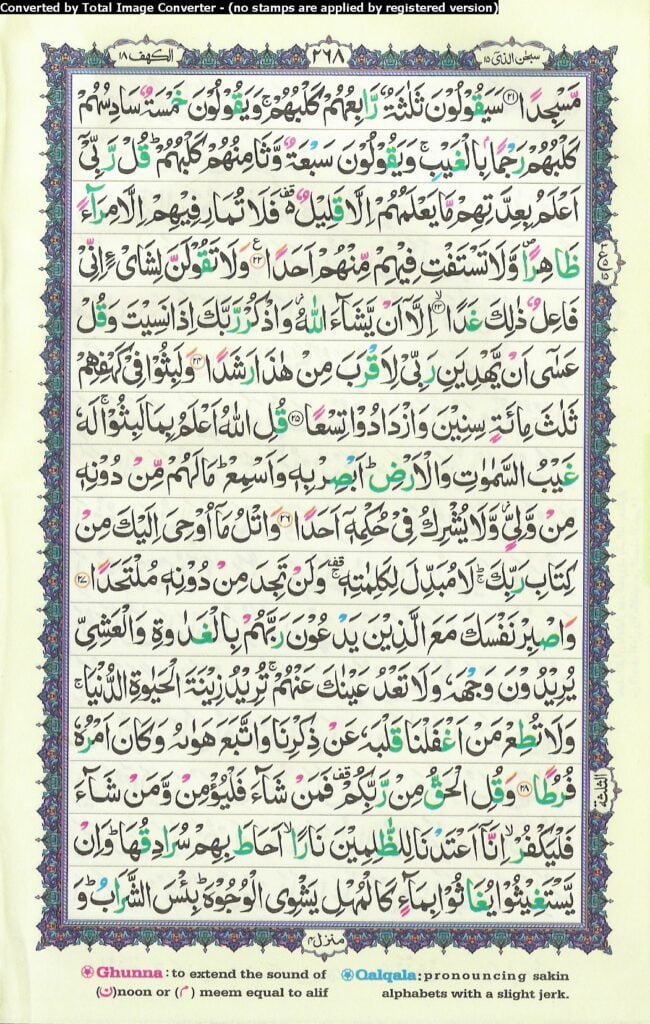 Converted by Total Image Converter - (no stamps are applied by registered version)
سبحٰن الذیٓ ١٥
٢٦٨
الکهف ١٨
مَّسْجِدًا ﴿٢١﴾ سَيَقُوْلُوْنَ ثَلٰثَةٌ رَّابِعُهُمْ كَلْبُهُمْ ۚ وَيَقُوْلُوْنَ خَمْسَةٌ سَادِسُهُمْ
كَلْبُهُمْ رَجْمًا بِالْغَيْبِ ۚ وَيَقُوْلُوْنَ سَبْعَةٌ وَّثَامِنُهُمْ كَلْبُهُمْ ؕ قُلْ رَّبِّیْۤ
اَعْلَمُ بِعِدَّتِهِمْ مَّا يَعْلَمُهُمْ اِلَّا قَلِيْلٌ ۫ فَلَا تُمَارِ فِيْهِمْ اِلَّا مِرَآءً
ظَاهِرًا ۪ وَّلَا تَسْتَفْتِ فِيْهِمْ مِّنْهُمْ اَحَدًا ﴿٢٢﴾ وَلَا تَقُوْلَنَّ لِشَایْءٍ اِنِّیْ
فَاعِلٌ ذٰلِكَ غَدًا ﴿٢٣﴾ اِلَّاۤ اَنْ يَّشَآءَ اللّٰهُ ؗ وَاذْكُرْ رَّبَّكَ اِذَا نَسِيْتَ وَقُلْ
عَسٰۤی اَنْ يَّهْدِيَنِ رَبِّیْ لِاَقْرَبَ مِنْ هٰذَا رَشَدًا ﴿٢٤﴾ وَلَبِثُوْا فِیْ كَهْفِهِمْ
ثَلٰثَ مِائَةٍ سِنِيْنَ وَازْدَادُوْا تِسْعًا ﴿٢٥﴾ قُلِ اللّٰهُ اَعْلَمُ بِمَا لَبِثُوْا ۚ لَهٗ
غَيْبُ السَّمٰوٰتِ وَالْاَرْضِ ؕ اَبْصِرْ بِهٖ وَاَسْمِعْ ؕ مَا لَهُمْ مِّنْ دُوْنِهٖ
مِنْ وَّلِیٍّ ؗ وَّلَا يُشْرِكُ فِیْ حُكْمِهٖۤ اَحَدًا ﴿٢٦﴾ وَاتْلُ مَاۤ اُوْحِیَ اِلَيْكَ مِنْ
كِتَابِ رَبِّكَ ؕ لَا مُبَدِّلَ لِكَلِمٰتِهٖ ۫ۚ وَلَنْ تَجِدَ مِنْ دُوْنِهٖ مُلْتَحَدًا ﴿٢٧﴾
وَاصْبِرْ نَفْسَكَ مَعَ الَّذِيْنَ يَدْعُوْنَ رَبَّهُمْ بِالْغَدٰوةِ وَالْعَشِیِّ
يُرِيْدُوْنَ وَجْهَهٗ وَلَا تَعْدُ عَيْنٰكَ عَنْهُمْ ۚ تُرِيْدُ زِيْنَةَ الْحَيٰوةِ الدُّنْيَا ۚ
وَلَا تُطِعْ مَنْ اَغْفَلْنَا قَلْبَهٗ عَنْ ذِكْرِنَا وَاتَّبَعَ هَوٰىهُ وَكَانَ اَمْرُهٗ
فُرُطًا ﴿٢٨﴾ وَقُلِ الْحَقُّ مِنْ رَّبِّكُمْ ۫ فَمَنْ شَآءَ فَلْيُؤْمِنْ وَّمَنْ شَآءَ
فَلْيَكْفُرْ ۙ اِنَّاۤ اَعْتَدْنَا لِلظّٰلِمِيْنَ نَارًا ۙ اَحَاطَ بِهِمْ سُرَادِقُهَا ؕ وَاِنْ
يَّسْتَغِيْثُوْا يُغَاثُوْا بِمَآءٍ كَالْمُهْلِ يَشْوِی الْوُجُوْهَ ؕ بِئْسَ الشَّرَابُ ؕ وَ
الثلٰثة
منزل ٤
Ghunna : to extend the sound of
(ن) noon or (م) meem equal to alif
Qalqala : pronouncing sakin
alphabets with a slight jerk.